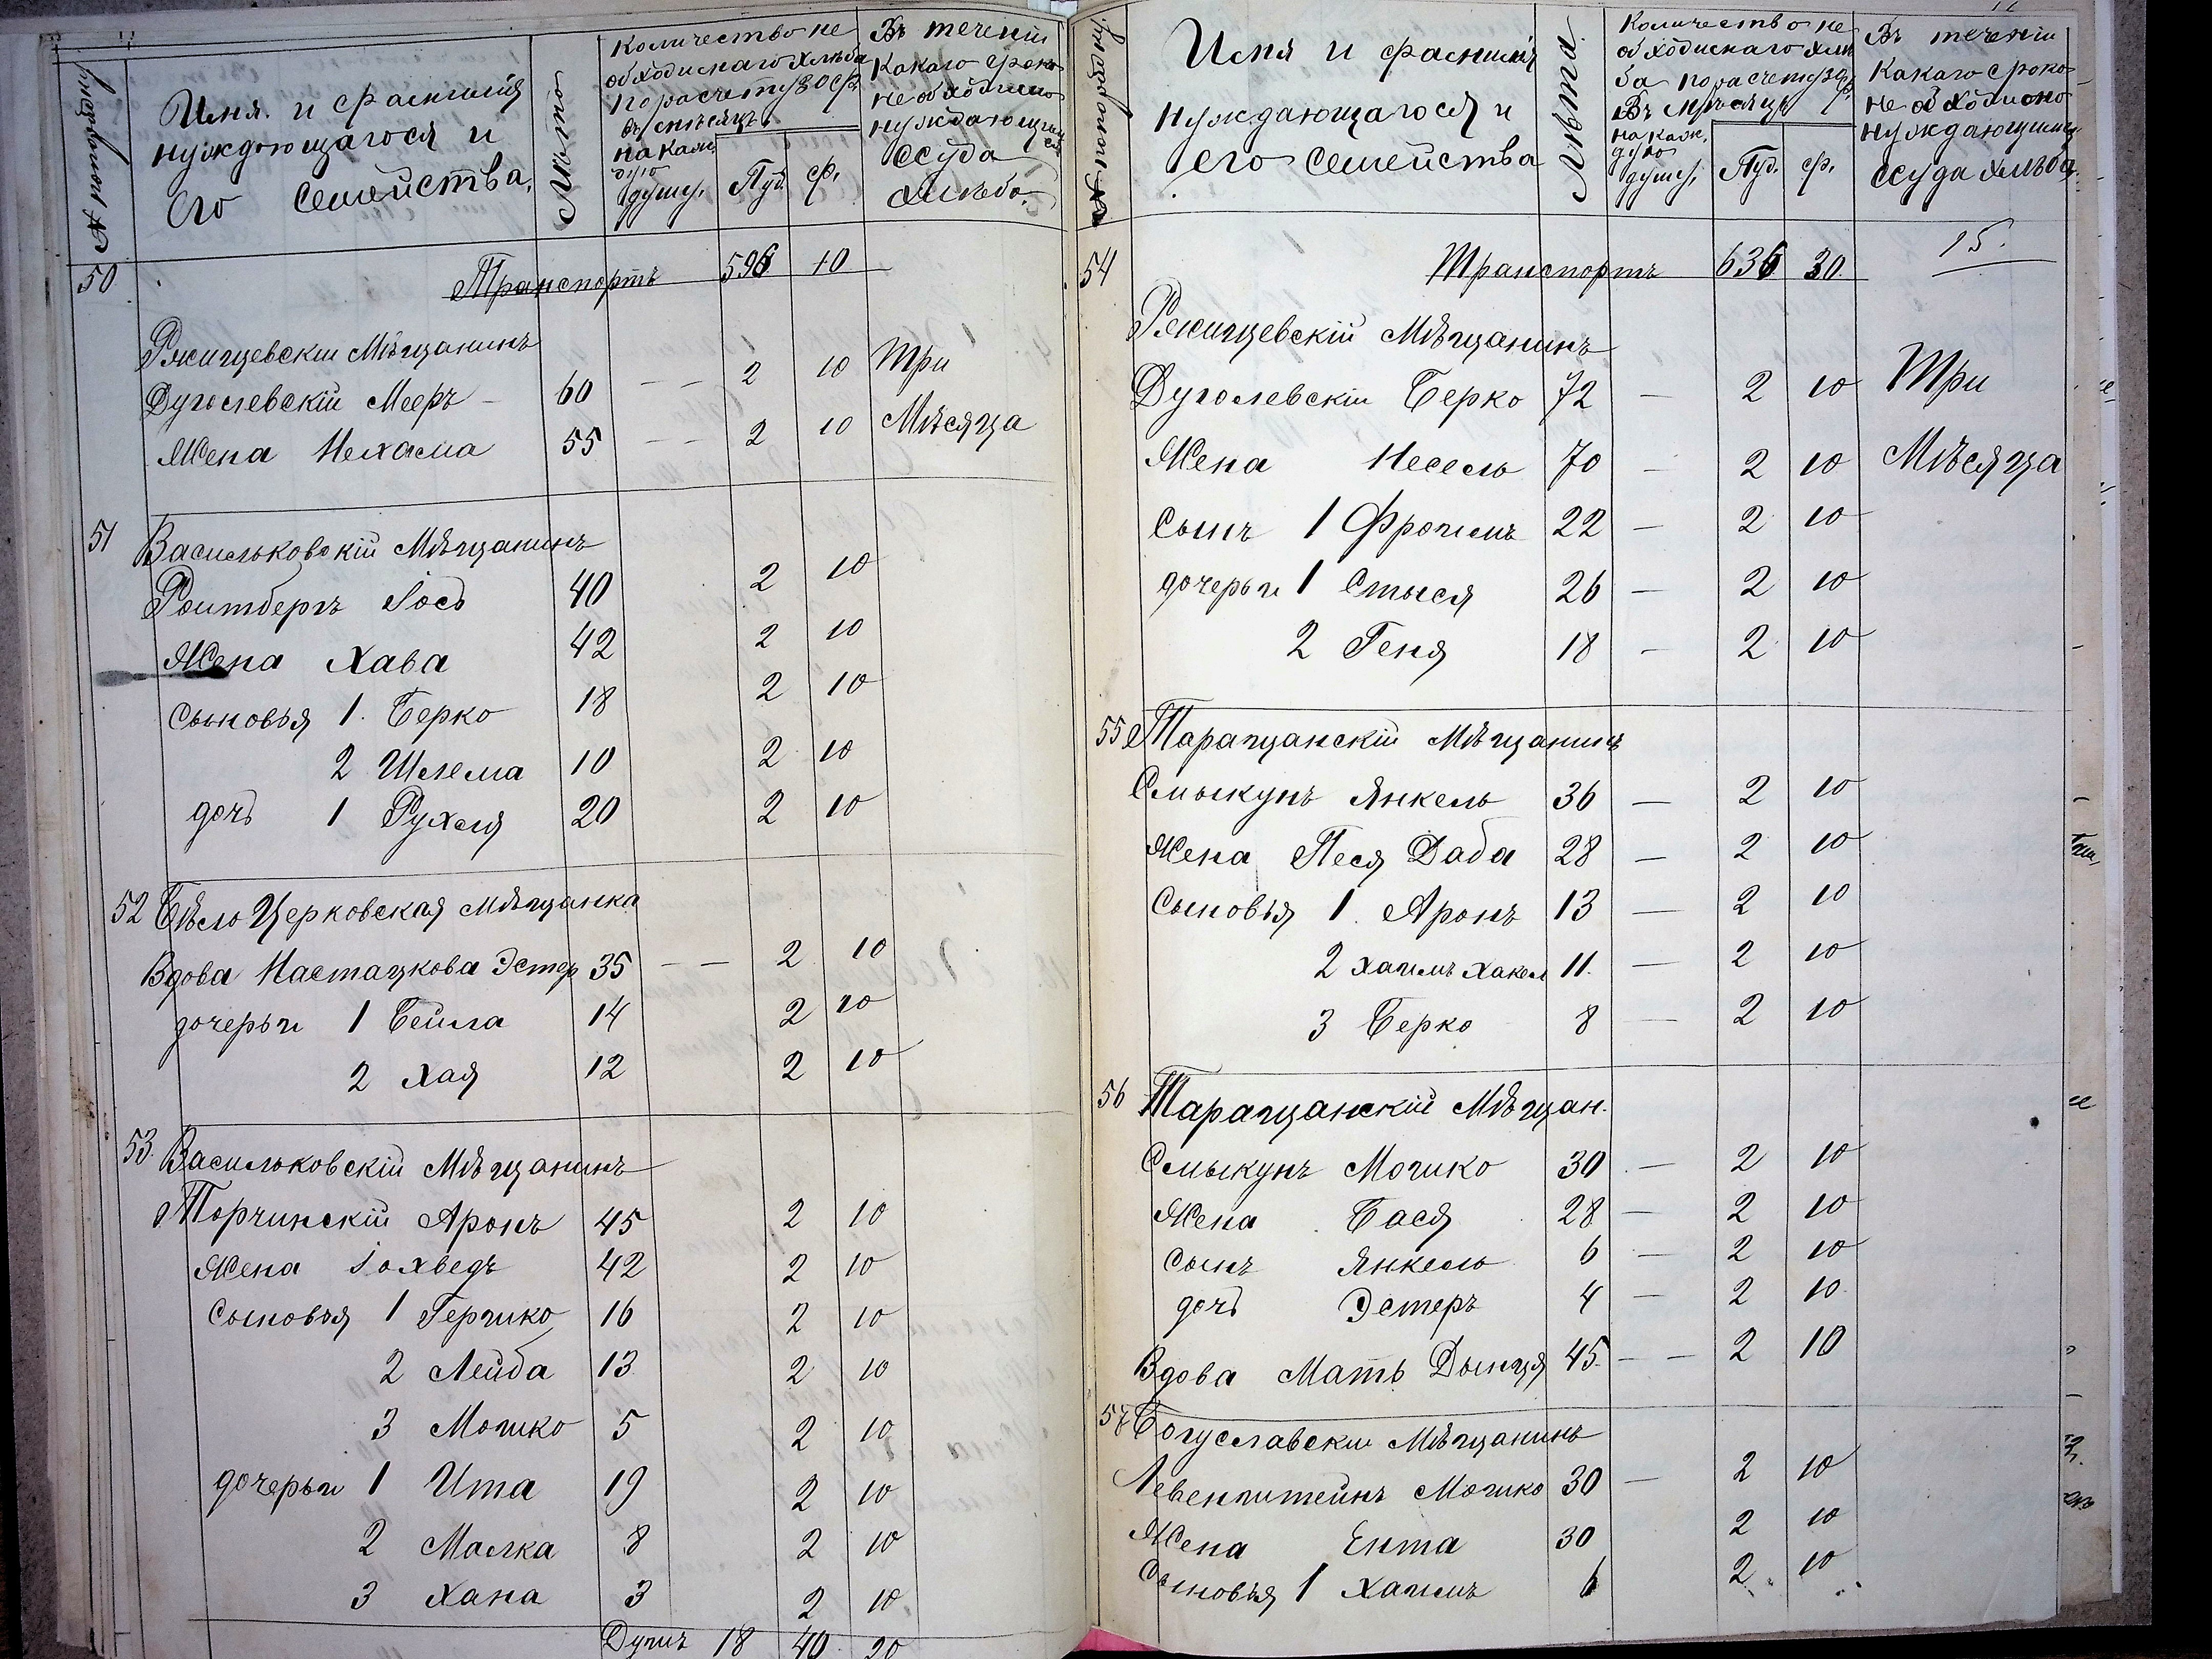 № по порядку
Имя и фамилия
нуждающагося и
его семейства.
Лѣта
Количество не
обходимаго хлѣба
по расчету 30 ф.
въ мѣсяцъ
на каж
дую
душу.
Пуд.
ф.
Въ теченіи
какаго срока
необходимо
нуждающимся
ссуда
хлѣба.
50 Транспортъ 596 10
Ржищевскіи Мѣщанинъ
Дуголевскій Мееръ 60 — — 2 10 Три
Жена Нехама 55 — — 2 10 Мѣсяца
51 Васильковскій Мѣщанинъ
Роитбергъ Іось 40 2 10
Жена Хава 42 2 10
Сыновья 1. Берко 18 2 10
2 Шлема 10 2 10
дочь 1 Рухля 20 2 10
52 Бѣло Церковская мѣщанка
Вдова Настацкова Эстер 35 — — 2 10
дочерьи 1 Бейла 14 2 10
2 Хая 12 2 10
53. Васильковскій Мѣщанинъ
Торчинскій Аронъ 45 2 10
Жена Іохведъ 42 2 10
Сыновья 1 Гершко 16 2 10
2 Лейба 13 2 10
3 Мошко 5 2 10
дочерьи 1 Ита 19 2 10
2 Малка 8 2 10
3 Хана 3 2 10
Душъ 18 40 20
№ по порядку
Имя и фамилія
нуждающагося и
его семейства
Лѣта
Количество не
обходимаго хлѣ
ба по расчету 30 ф.
въ мѣсяцъ
на каж.
дую
душу.
Пуд.
ф.
Въ теченіи
какаго срока
необходимо
нуждающимся
ссуда хлѣба.
54 Транспортъ 636 30 15.
Ржищевскій Мѣщанинъ
Дуголевскіи Берко 72 — 2 10 Три
Жена Несель 70 — 2 10 Мѣсяца
Сынъ 1 Фроимъ 22 — 2 10
дочерьи 1 Стыся 26 — 2 10
2 Геня 18 — 2 10
55 Таращанскій мѣщанинъ
Смыкунъ Янкель 36 — 2 10
Жена Песя Даба 28 — 2 10
Сыновья 1. Аронъ 13 — 2 10
2 Хаимъ Хакел 11. — 2 10
3 Берко 8 — 2 10
56 Таращанскій Мѣщан.
Смыкунъ Мошко 30 — 2 10
Жена Бася 28 — 2 10
Сынъ Янкель 6 — 2 10
дочь Эстеръ 4 — 2 10
Вдова Мать Дынця 45. — — 2 10
57 Богуславскіи Мѣщанинъ
Левенштейнъ Мошко 30 — 2 10
Жена Ента 30 2 10
Сыновья 1 Хаимъ 6 2 10